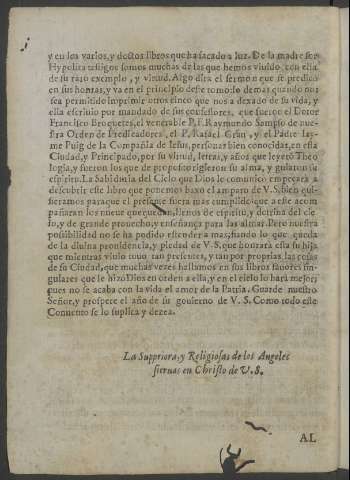 y en los varios, y doctos libros que ha sacado a luz. De la madre sor
Hypolita testigos somos muchas de las que hemos viuido con ella
de su raro exemplo, y virtud. Algo dira el sermon que se predicò
en sus honras, y va en el principio deste tomo: lo demas quando nos
sea permitido imprimir otros cinco que nos a dexado de su vida, y
ella escriuio por mandado de sus confessores, que fueron el Dotor
Francisco Broquetes, el venerable P. F. Raymundo Sampso de nue-
stra Orden de Predicadores, el P. Rafael Grau, y el Padre Iay-
me Puig de la Compañia de Iesus, personas bien conocidas, en esta
Ciudad, y Principado, por su virtud, letras, y años que leyerõ Theo
logia, y fueron los que de proposito rigieron su alma, y guiaron su
espiritu. La Sabiduria del Cielo que Dios le comunicò empeçarà a
descubrir este libro que ponemos baxo el amparo de V.S. bien qui-
sieramos para que el presente fuera mas cumplido que a este acom
pañaran los nueue que quedan, llenos de espiritu, y dotrina del cie-
lo, y de grande prouecho, y enseñança para las almas. Pero nuestra
possibilidad no se ha podido estender a mas; fiando lo que queda
de la diuina prouidencia, y piedad de V.S. que honrarà esta su hija
que mientras viuio tuuo tan presentes, y tan por proprias las cosas
de su Ciudad, que muchas vezes hallamos en sus libros fauores sin-
gulares que le hizo Dios en orden a ella, y en el cielo lo harà mejor;
pues no se acaba con la vida el amor de la Patria. Guarde nuestro
Señor, y prospere el año de su gouierno de V.S. Como todo este
Conuento se lo suplica y dezea.
La Suppriora, y Religiosas de los Angeles
sieruas en Christo de V.S.
AL